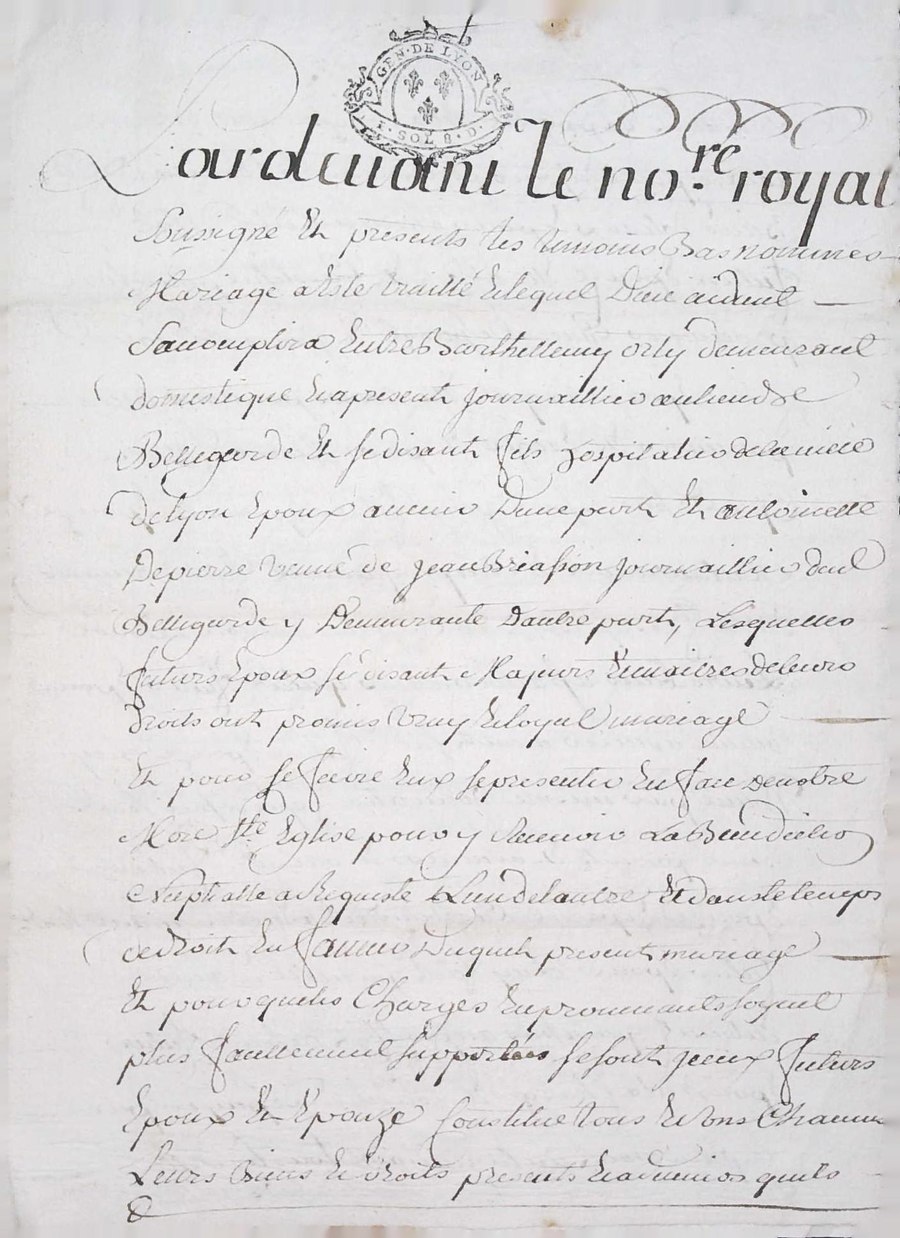 GEN · DE LYON
1 · SOL 8 · D ·
Pardevant le no.re royal
Soussigné Et présents les temoins Bas nommes
Mariage a Esté traitté Lequel Dieu aidant
Sacomplira Entre Barthellemy orly demeurant
domestique Et apresent journaillier au lieu de
Bellegarde Et se disant fils hospitalier de
de lyon Epoux avenir Dune part Et antoinette
Depierre veuve de jean Briasson journaillier de
Bellegarde y Demeurante Daultre part, Lesquelles
futurs Epoux se disant Majeurs Et maitres de leurs
droits ont promis vray Et loyal mariage
Et pour se faire Eux se presenter En face de notre
Mere Ste Eglise pour y recevoir La Benediction
Nuptialle a Requiste Lun de laultre Et dans le temps
de droit En faveur Duquel present mariage
Et pour que les Charges En provenants soyent
plus facillement supportées se sont jceux futurs
Epoux Et Epouze Constitué tous Et uns Chacun
Leurs Biens Et droits presents Et advenirs quils